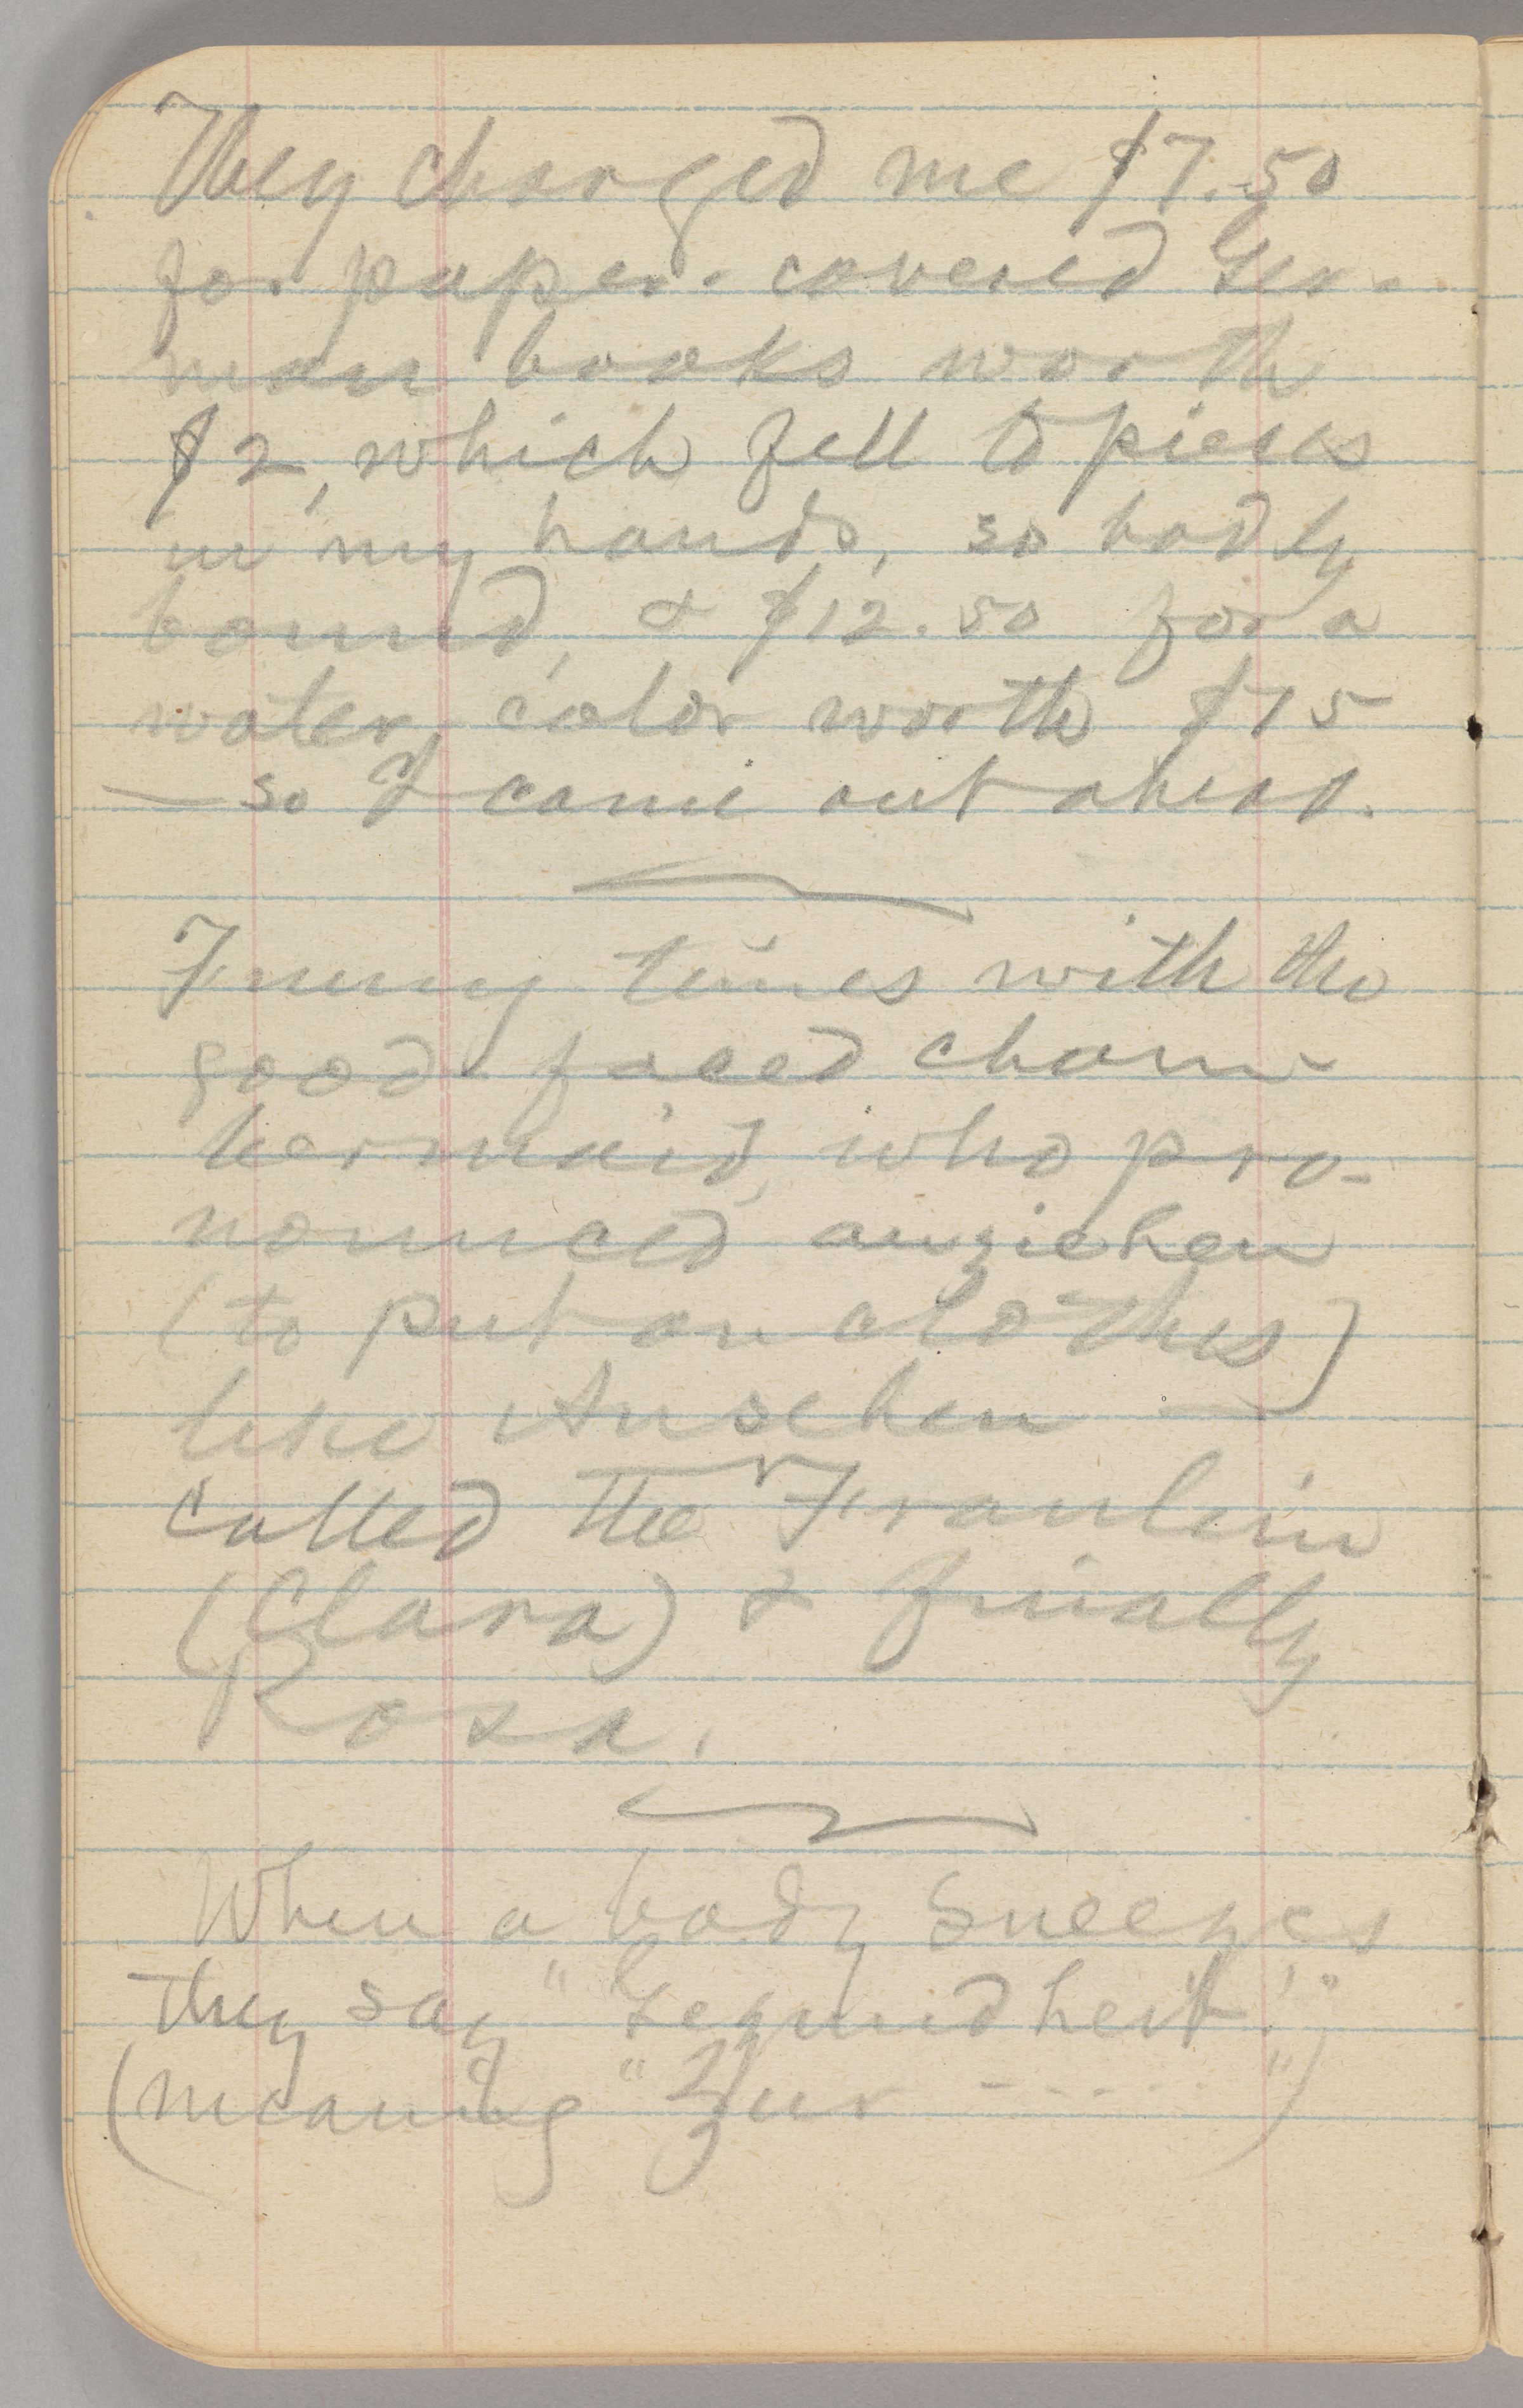 They charged me $7.50
for paper-covered Ger-
man books worth
$2, which fell to pieces
in my hands, so badly
bound, & $12.50 for a
water color worth $75
— so I came out ahead.
Funny times with the
good-faced cham-
bermaid, who pro-
nounced anziehen
(to put on clothes)
like Ansehen
called the Fraulein
(Clara) & finally
Rosa.
When a body sneezes
they say "Gesundheit!"
(meaning "Zur - - - - - -")